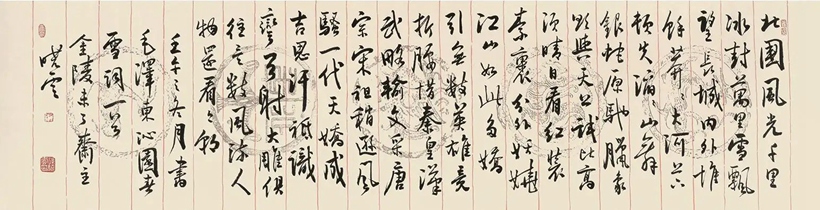 北國風光千里
冰封萬里雪飄
望長城内外惟
餘莽莽大河上下
頓失滔滔山舞
銀蛇原馳臘象
欲與天公試比高
須晴日看紅裝
素裹分外妖嬈
江山如此多嬌
引無數英雄競
折腰惜秦皇漢
武略輸文采唐
宗宋祖稍遜風
騷一代天驕成
吉思汗祗識
彎弓射大雕俱
往矣數風流人
物還看今朝
壬午之冬月書
毛澤東沁園春
雪詞一首
金陵未了齋主
曉雲